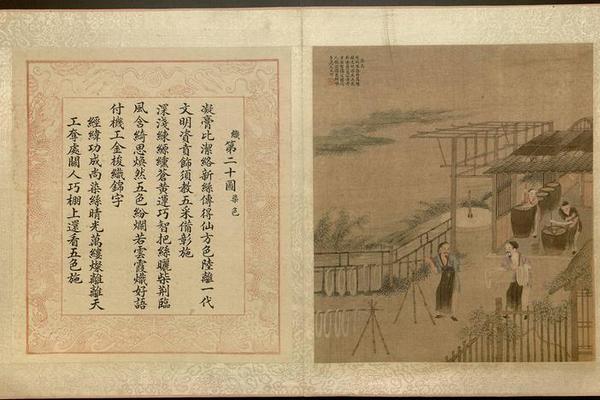 織第二十圖 染色
凝膏比潔絡新絲傳得仙方色陸離一代
文明資賁飾須教五采備彰施
深淺練縹纁蒼黃運巧智把絲曬柴荆臨
風含綺思煥然五色紛爛若雲霞熾好語
付機工金梭織錦字
經緯功成尚染絲晴光萬縷燦離離天
工奪處關人巧棚上還看五色施